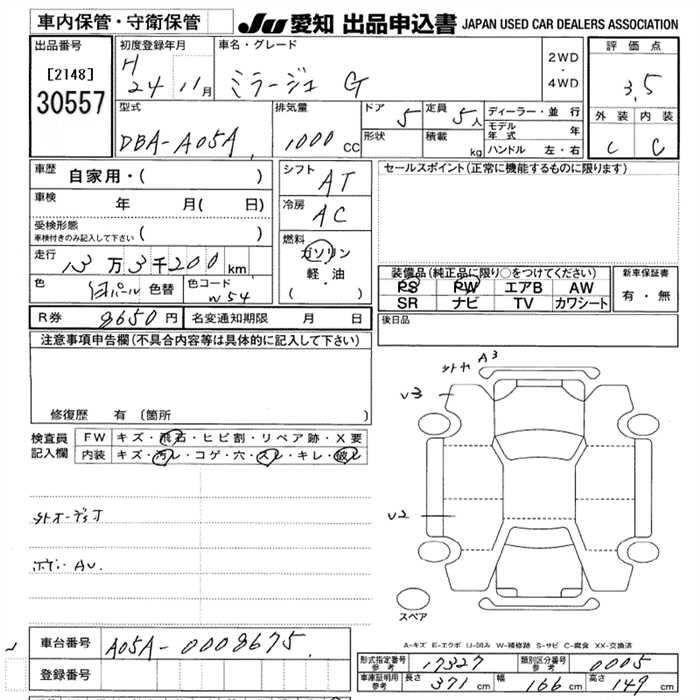 車内保管・守衛保管
JU 愛知 出品申込書 JAPAN USED CAR DEALERS ASSOCIATION
出品番号
[2148]
30557
初度登録年月
H 24 11月
車名・グレード
ミラージュ G
2WD
・
4WD
評価点
3.5
外装 内装
C C
型式
DBA-A05A
排気量
1000 CC
ドア 5
形状
定員 5人
積載 kg
ディーラー・並行
モデル年式 年
ハンドル 左・右
車歴 自家用・( )
車検 年 月( 日)
受検形態
車検付きのみ記入して下さい ( )
走行 13万3千200km
色 パール 色替
色コード W54
シフト AT
冷房 AC
燃料
ガソリン
軽・油
( )
セールスポイント(正常に機能するものに限ります)
装備品(純正品に限り○をつけてください)
PS PW エアB AW
SR ナビ TV カワシート
新車保証書
有・無
R券 8650円 名変通知期限 月 日
後日品
注意事項申告欄(不具合内容等は具体的に記入して下さい)
修復歴 有 (箇所 )
検査員
記入欄
FW キズ・飛石・ヒビ割・リペア跡・X要
内装 キズ・汚レ・コゲ・穴・スレ・キレ・破レ
外オーディオ
ボディ AU.
A3
V3
V2
スペア
車台番号 A05A-0008675
登録番号
A-キズ E-エクボ U-凹み W-補修跡 S-サビ C-腐食 XX-交換済
形式指定番号 参考 17327
類別区分番号 参考 0005
車庫証明用 参考 長さ 371cm 幅 166cm 高さ 149cm